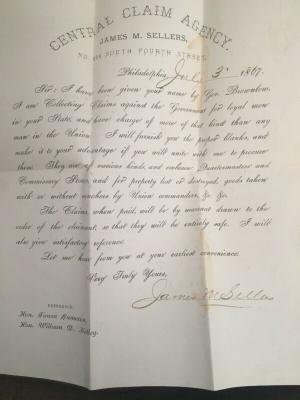 CENTRAL CLAIM AGENCY.
JAMES M. SELLERS,
SOUTH FOURTH STREET
Philadelphia, July 3 1867.
Sir: I have been given your name by Gov. Brownlow.
I am Collecting Claims against the Government for loyal men
in your State, and have charge of more of that kind than any
man in the Union. I will furnish you the proper blanks, and
make it to your advantage if you will unite with me to procure
them. They are of various kinds, and embrace Quartermasters' and
Commissary Stores, and for property lost or destroyed, goods taken
with or without vouchers by Union commanders, &c. &c.
The Claims, when paid, will be by warrant drawn to the
order of the claimant, so that they will be entirely safe. I will
also give satisfactory reference.
Let me hear from you at your earliest convenience.
Very Truly Yours,
James M Sellers
REFERENCE.
Hon. Simon Cameron,
Hon. William D. Kelley.